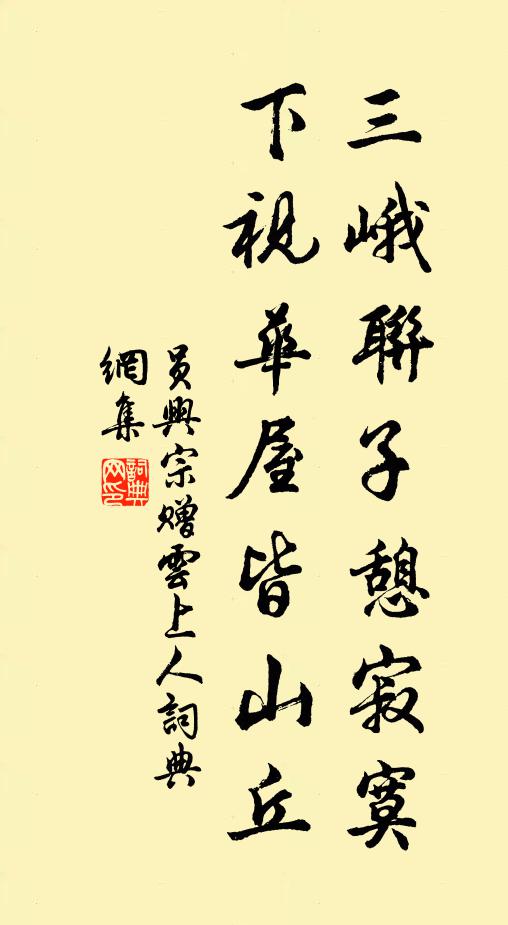 三峨聯子憩寂寞
下視華屋皆山丘
員興宗贈雲上人詞典
網集
詞典
网印